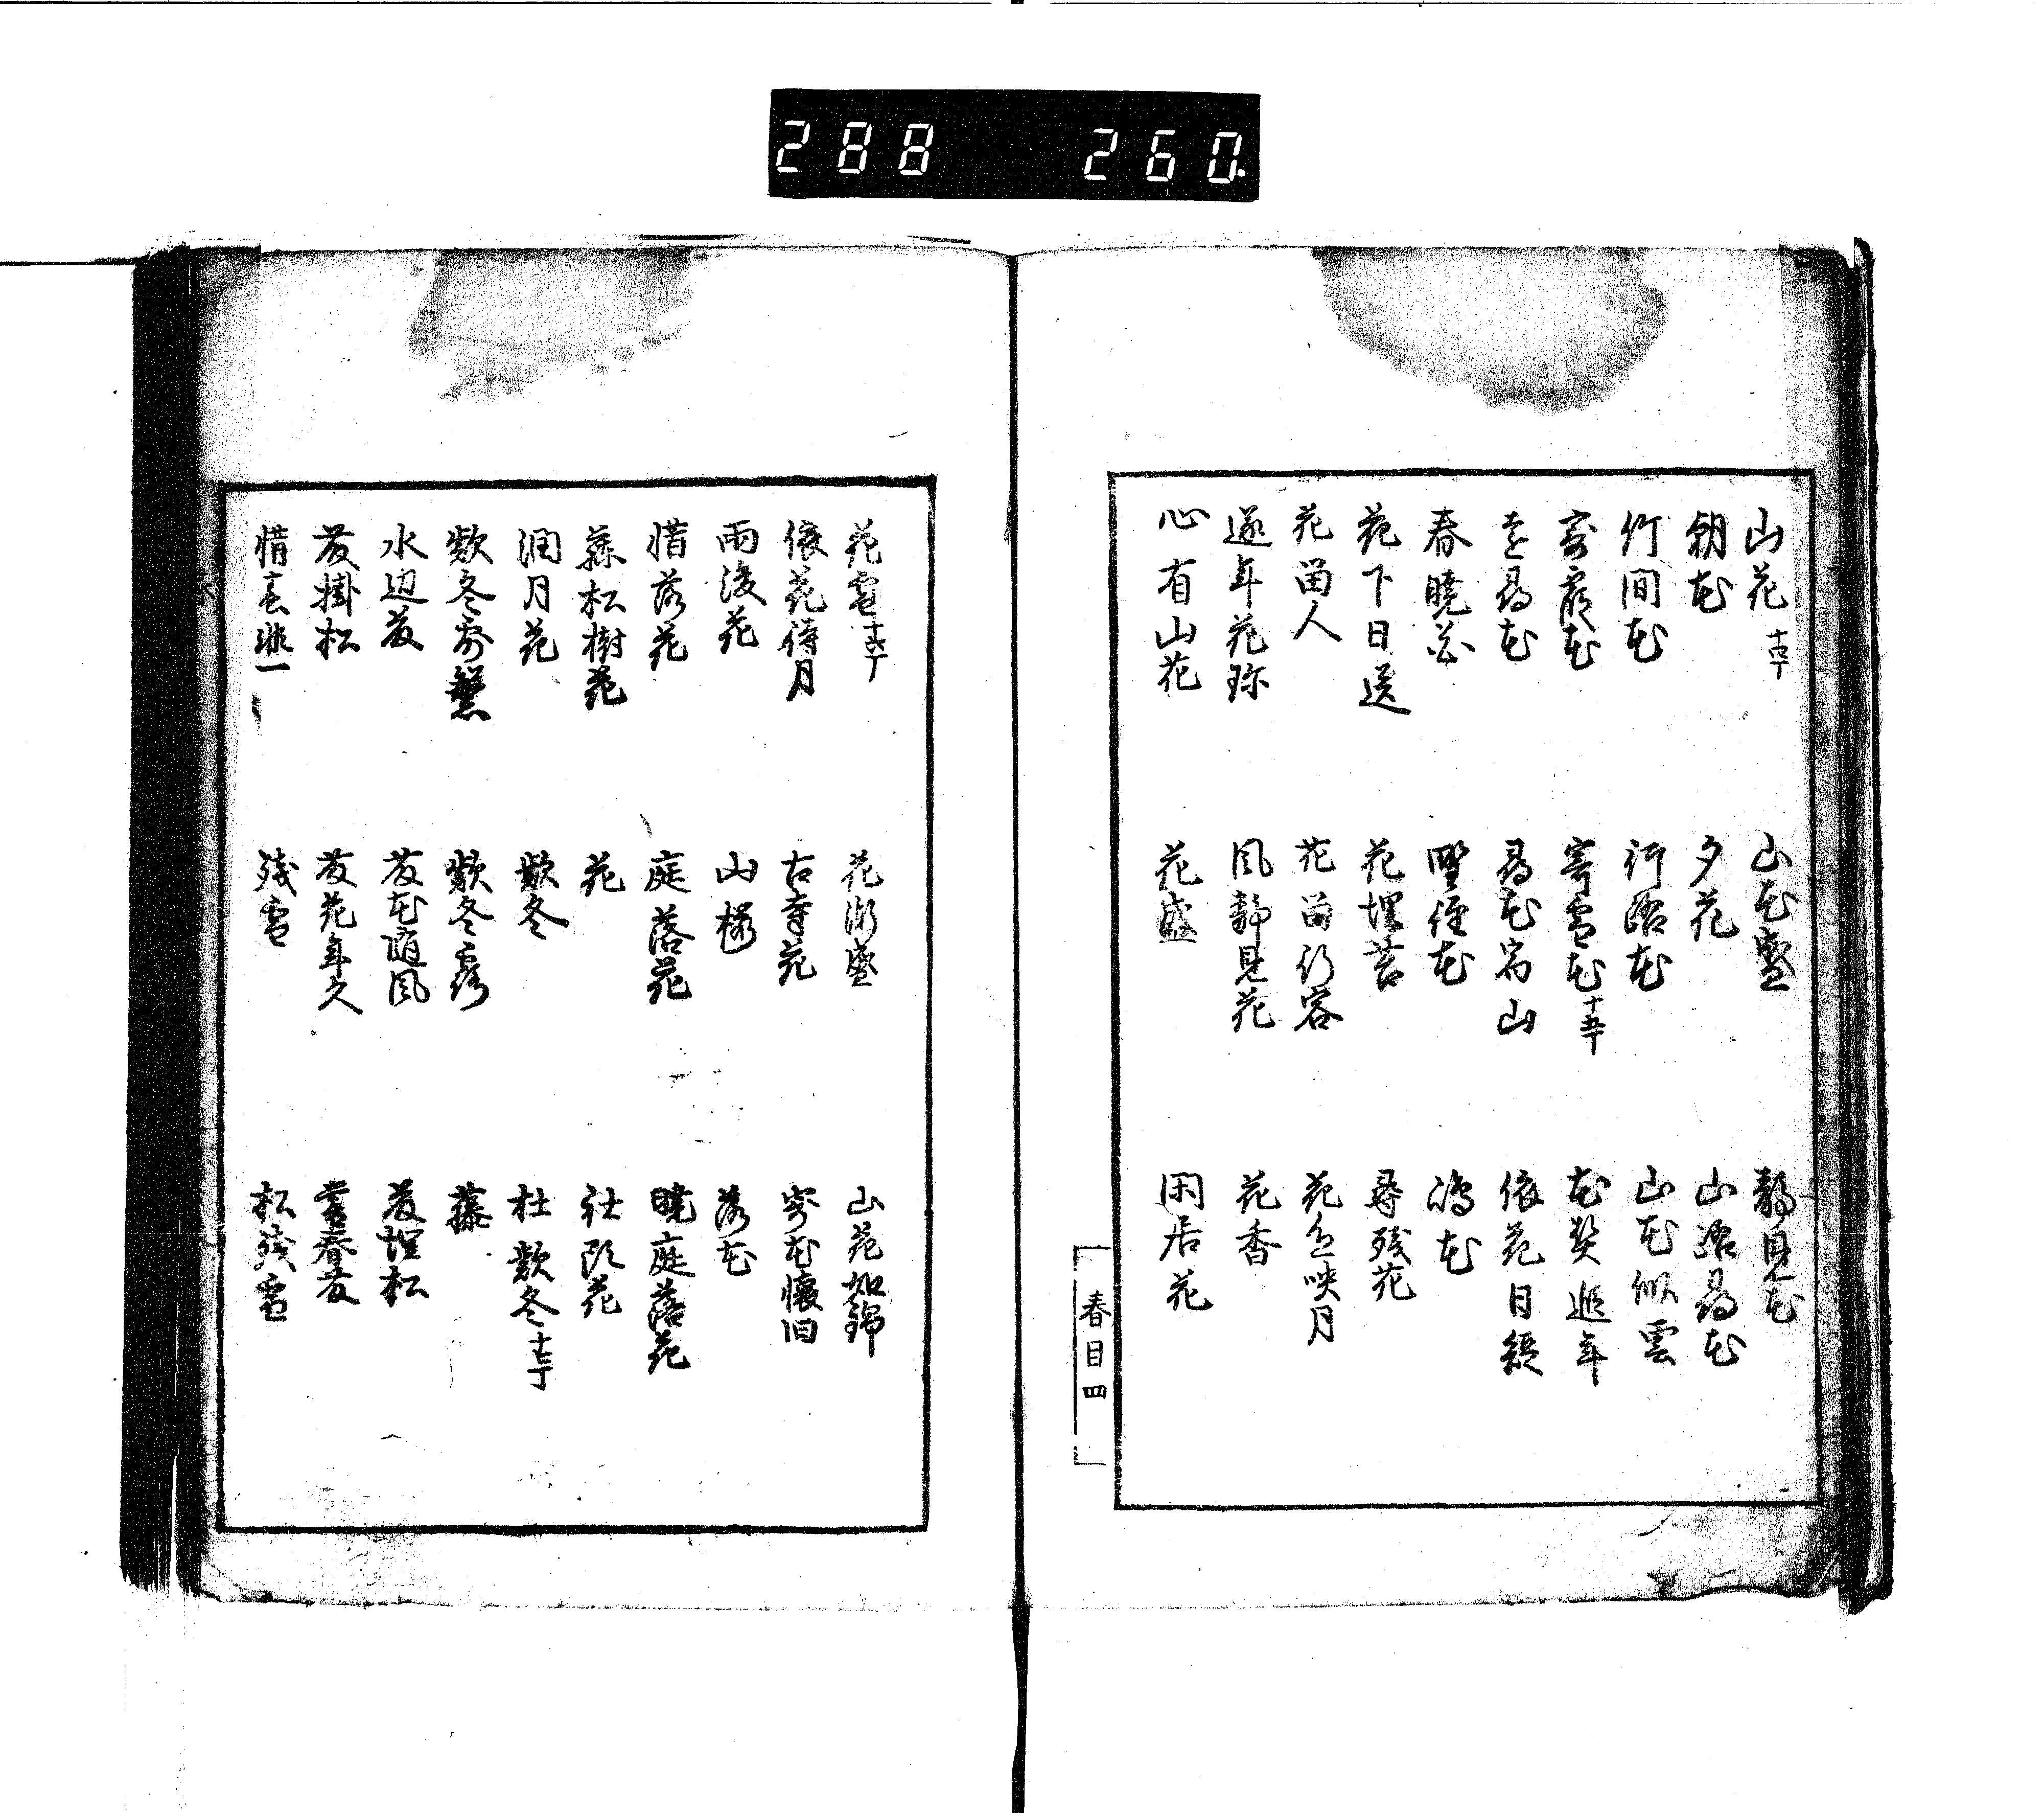 288 260
山花 十四丁
山花盛
静見花
朝花
夕花
山路尋花
竹間花
行路花
山花似雲
寄霞花
寄雪花 十五丁
花契遐年
遠尋花
尋花宿山
依花日経
春暁花
野径花
鴻花
花下日送
花埋苔
尋残花
花留人
花留行客
花色映月
逐年花珍
風静見花
花香
心有山花
花盛
閑居花
春目四
花雪 十六丁
花漸盛
山花如錦
依花待月
古寺花
寄花懐旧
雨後花
山桜
落花
惜落花
庭落花
暁庭落花
藤松樹花
花
社頭花
澗月花
款冬
杜款冬 十七丁
款冬露繁
款冬露
藤
水辺藤
藤花随風
藤埋松
藤掛松
藤花年久
暮春藤
惜春非一
残雪
松残雪